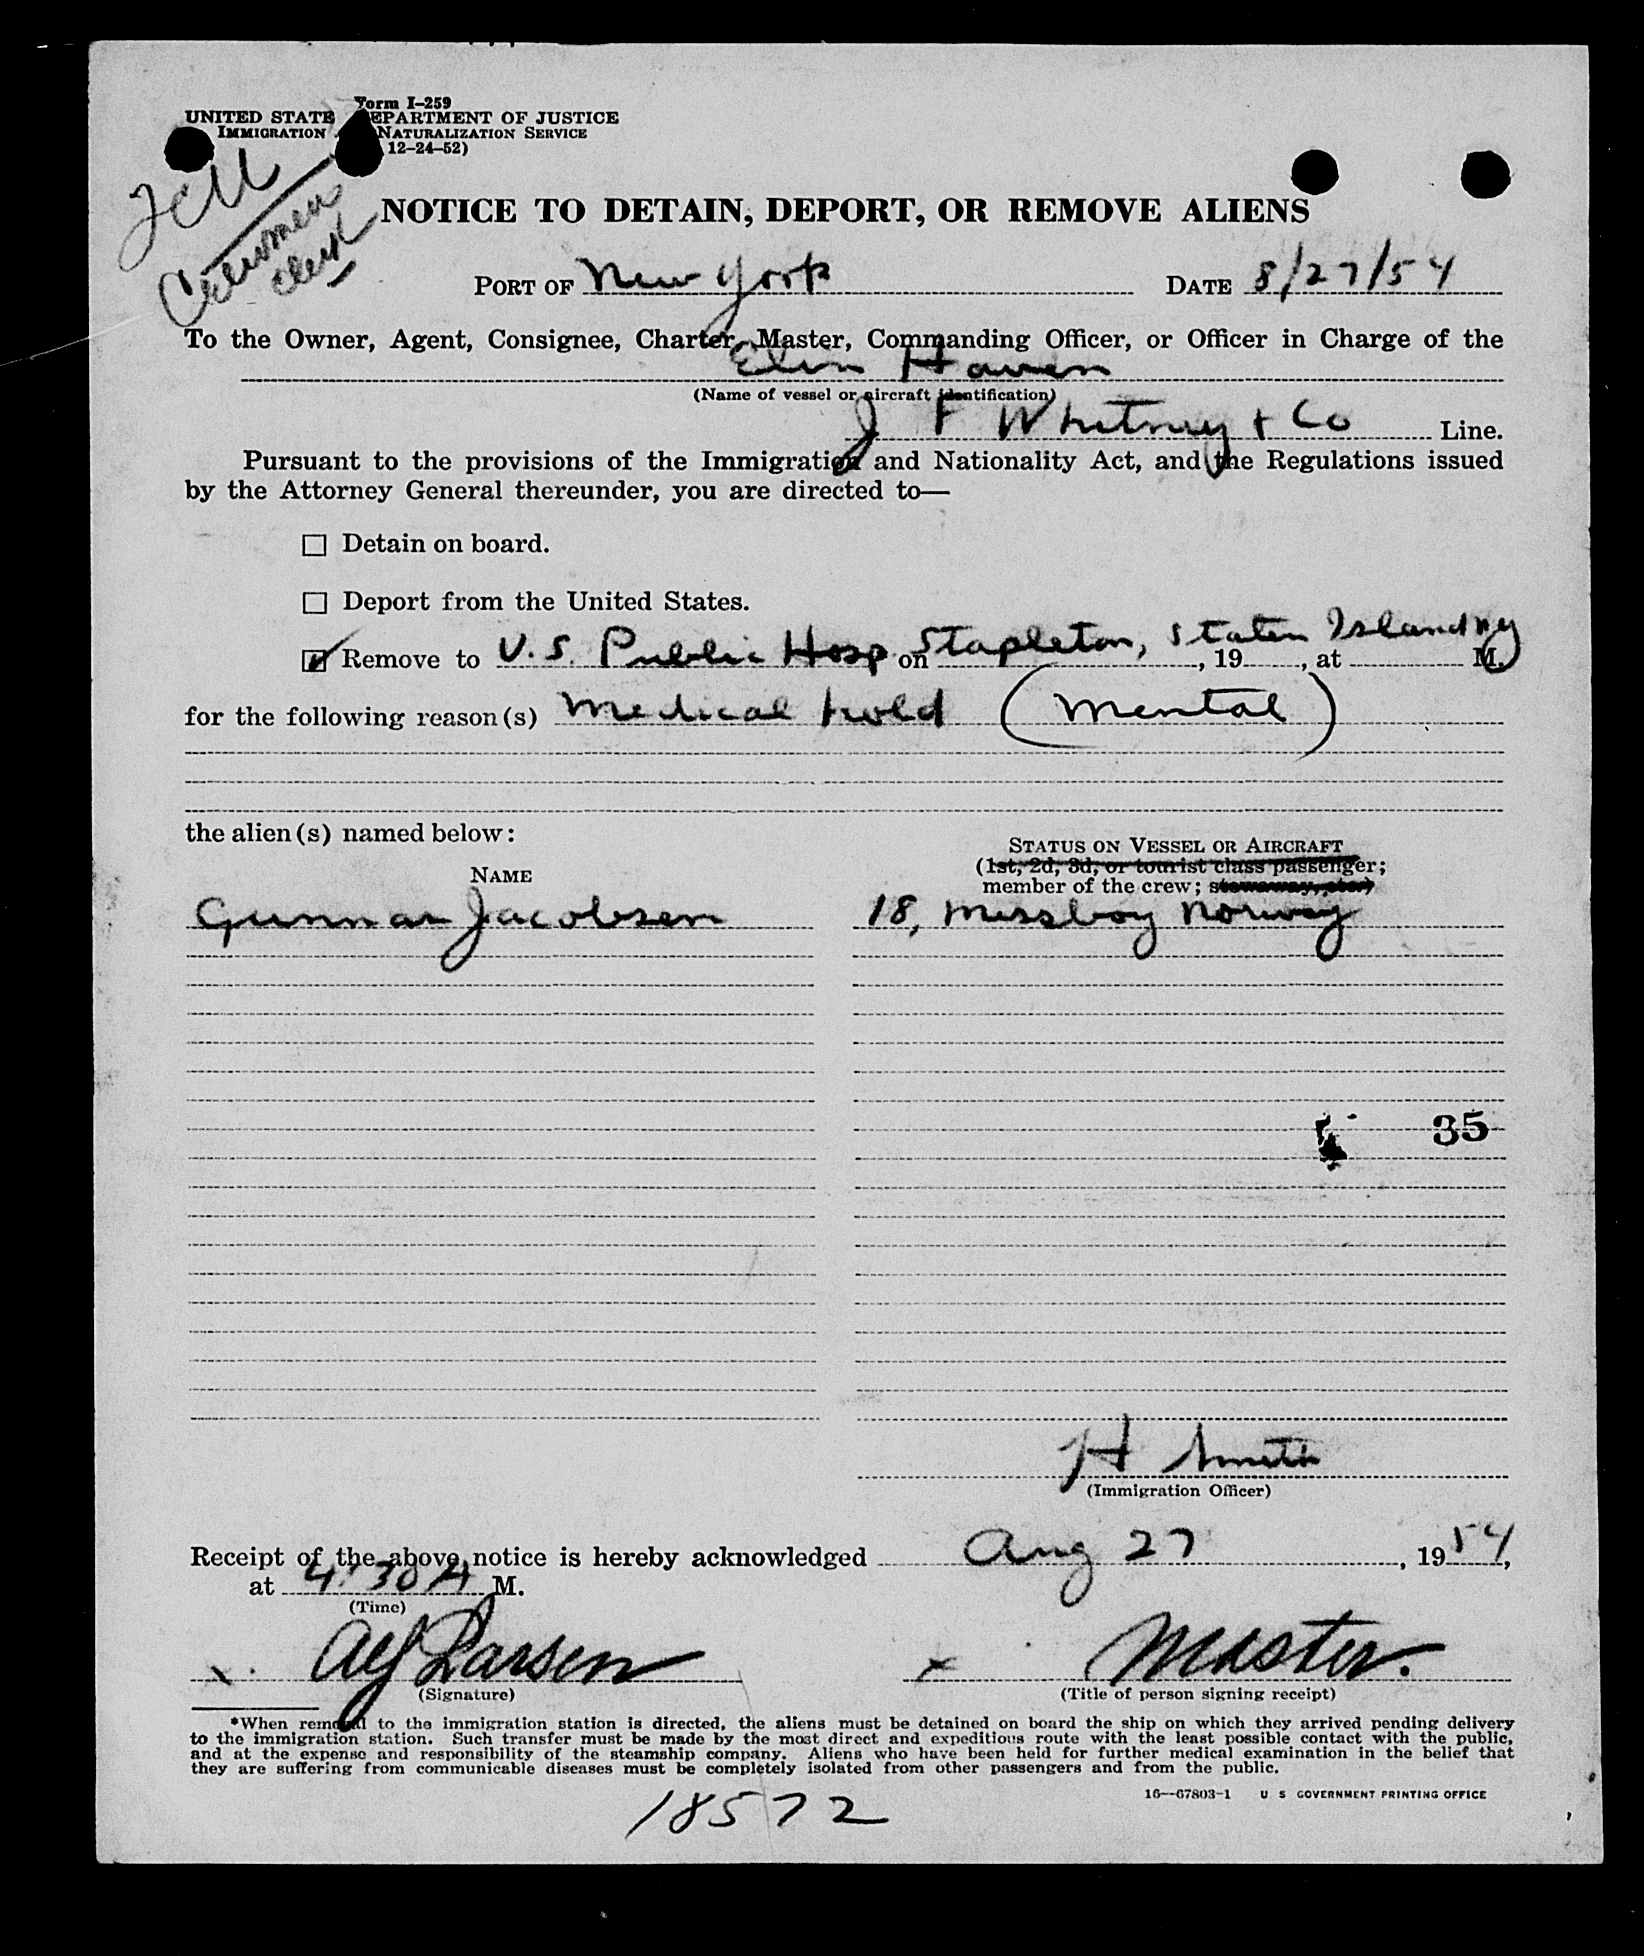 Form I–259
UNITED STATE DEPARTMENT OF JUSTICE
IMMIGRATION NATURALIZATION SERVICE
12–24–52)
NOTICE TO DETAIN, DEPORT, OR REMOVE ALIENS
PORT OF New York DATE 8/27/54
To the Owner, Agent, Consignee, Charter, Master, Commanding Officer, or Officer in Charge of the
Elin Haven
(Name of vessel or aircraft identification)
J F Whitney + Co Line.
Pursuant to the provisions of the Immigration and Nationality Act, and the Regulations issued
by the Attorney General thereunder, you are directed to—
Detain on board.
Deport from the United States.
Remove to U.S. Public Hosp on Stapleton, Staten Island NY, 19, at M.
for the following reason(s) Medical hold (Mental)
the alien(s) named below:
STATUS ON VESSEL OR AIRCRAFT
(1st, 2d, 3d, or tourist class passenger;
member of the crew;
NAME
Gunnar Jacobsen 18, Messboy Norway
35
H Smith
(Immigration Officer)
Receipt of the above notice is hereby acknowledged Aug 27, 1954,
at 4:30 A M.
(Time)
x Alf Larsen x Master.
(Signature) (Title of person signing receipt)
*When removal to the immigration station is directed, the aliens must be detained on board the ship on which they arrived pending delivery
to the immigration station. Such transfer must be made by the most direct and expeditious route with the least possible contact with the public,
and at the expense and responsibility of the steamship company. Aliens who have been held for further medical examination in the belief that
they are suffering from communicable diseases must be completely isolated from other passengers and from the public.
16—67803-1 U S GOVERNMENT PRINTING OFFICE
18572